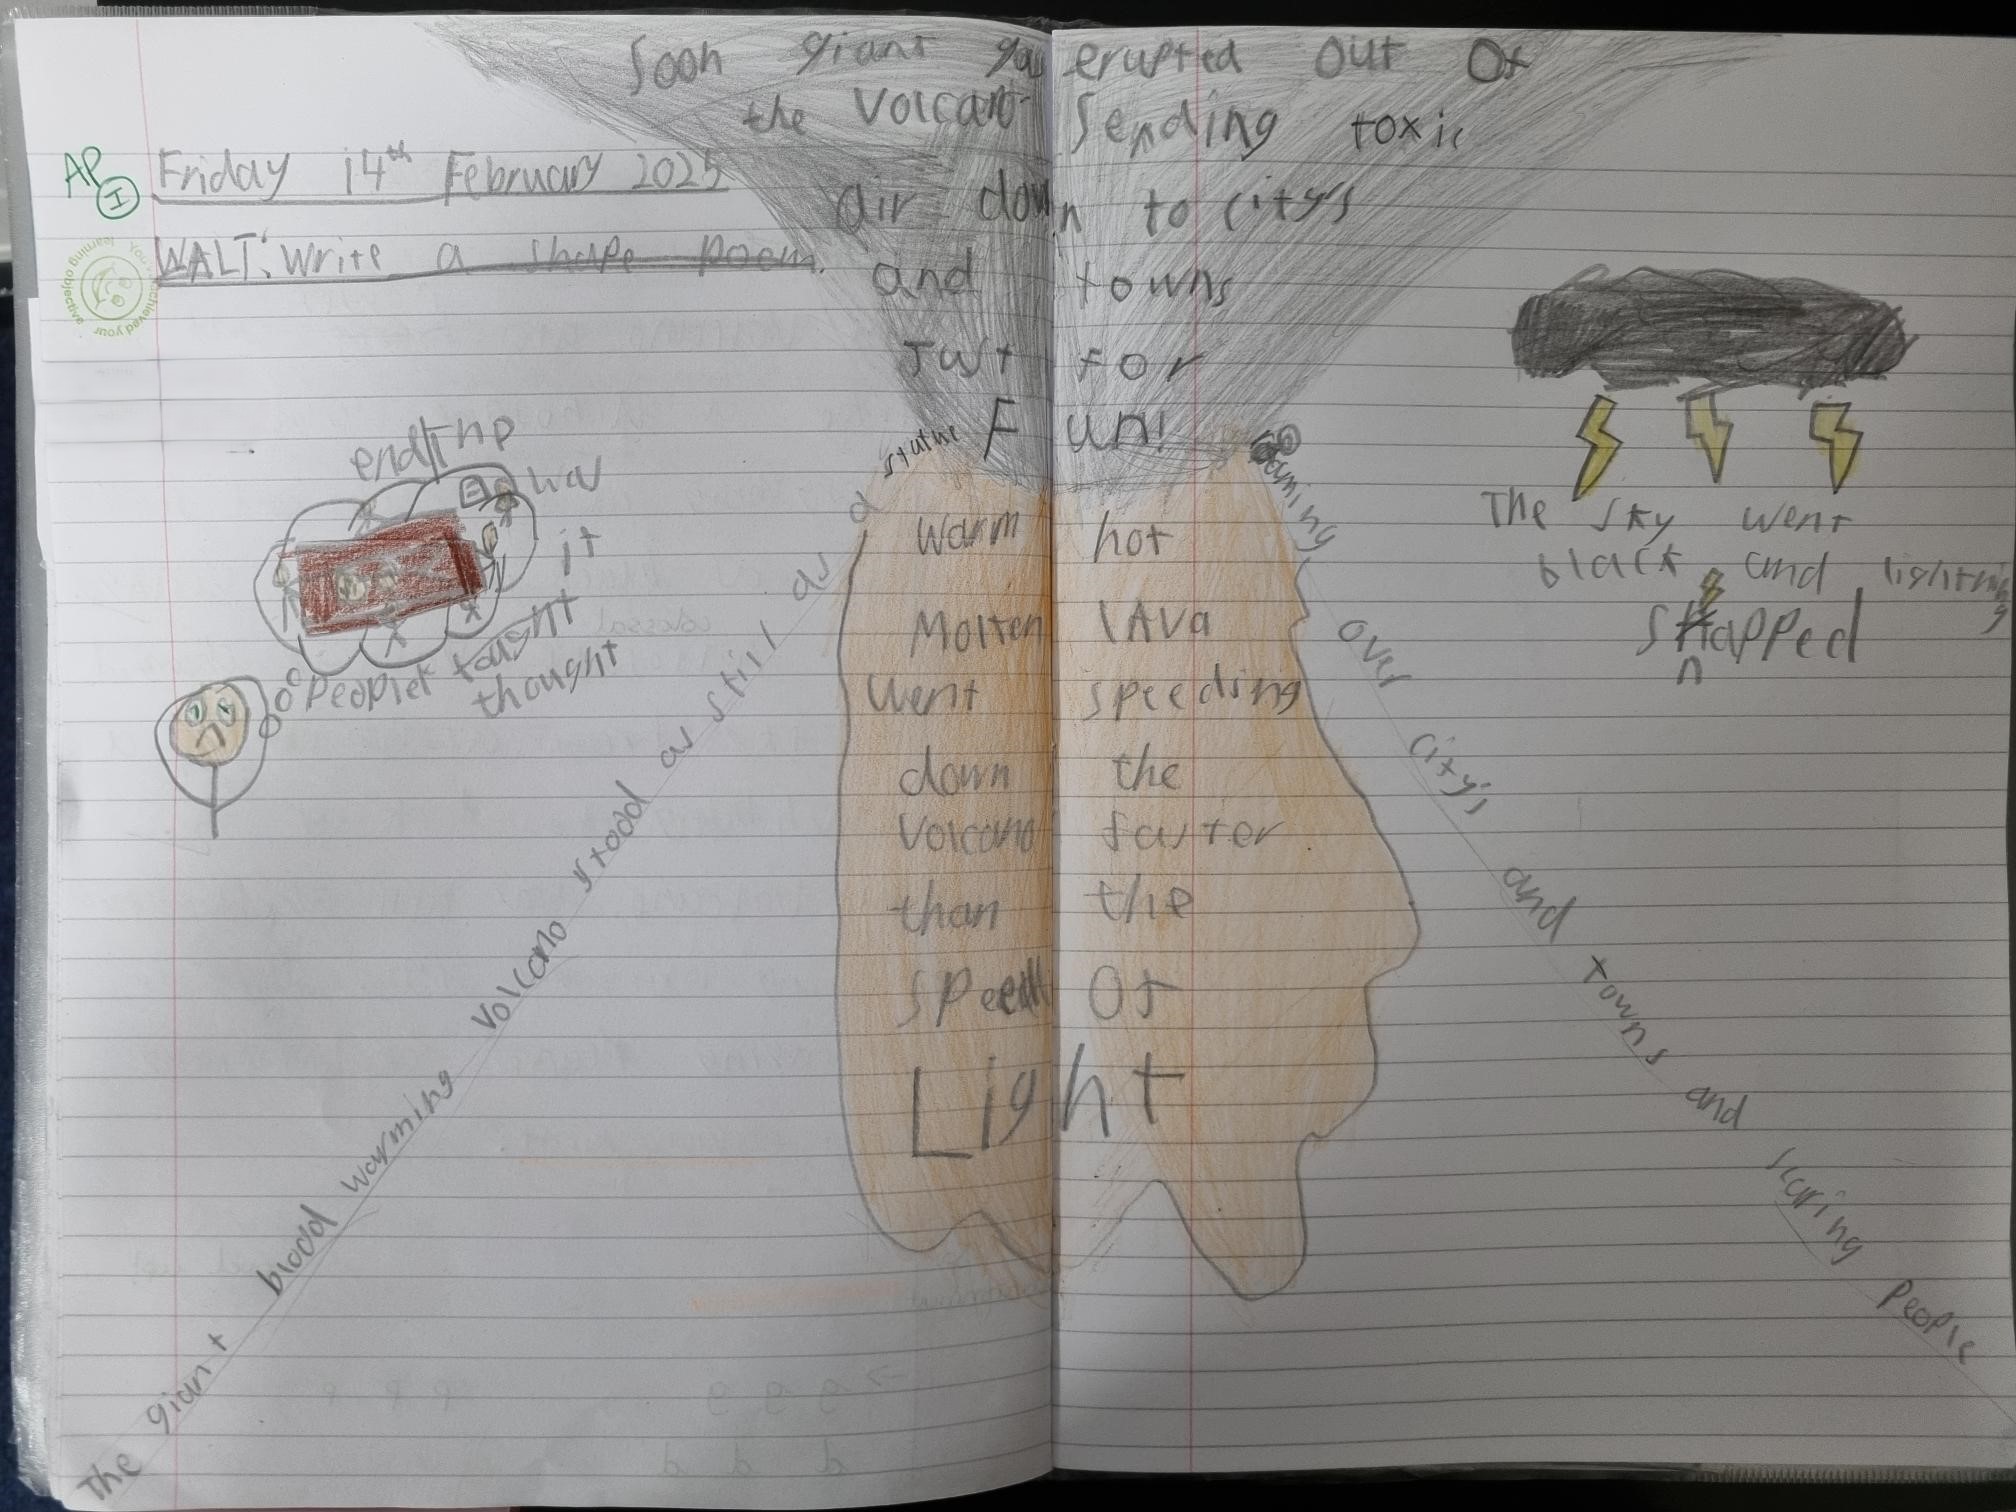 Soon giant gas erupted out Of
the Volcano Sending toxic
AP
I
Friday 14th February 2025
WALT: write a shape poem.
You've achieved your learning objective
air down to city's
and towns
Just for
Fun!
The giant blodd warming Volcano stodd as still as a statue
over city's and towns and scaring people
Warm hot
Molten lAva
Went speeding
down the
Volcano faster
than the
speed Of
Light
The sky went
black and lightning
snapped
People taught
thought
it
had
end